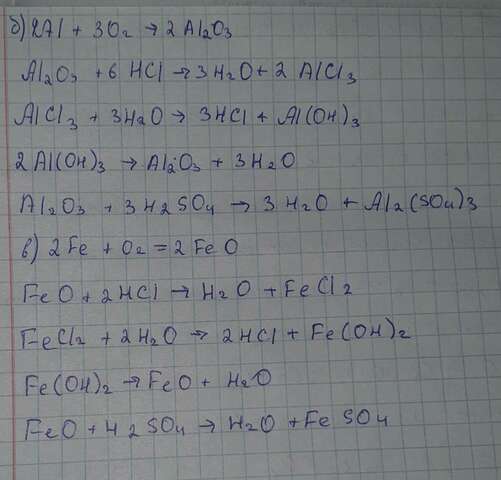 б) 2Al + 3O2 → 2Al2O3
Al2O3 + 6 HCl → 3H2O + 2 AlCl3
AlCl3 + 3H2O → 3HCl + Al(OH)3
2Al(OH)3 → Al2O3 + 3H2O
Al2O3 + 3H2SO4 → 3 H2O + Al2(SO4)3
в) 2Fe + O2 = 2FeO
FeO + 2HCl → H2O + FeCl2
FeCl2 + 2H2O → 2HCl + Fe(OH)2
Fe(OH)2 → FeO + H2O
FeO + H2SO4 → H2O + FeSO4